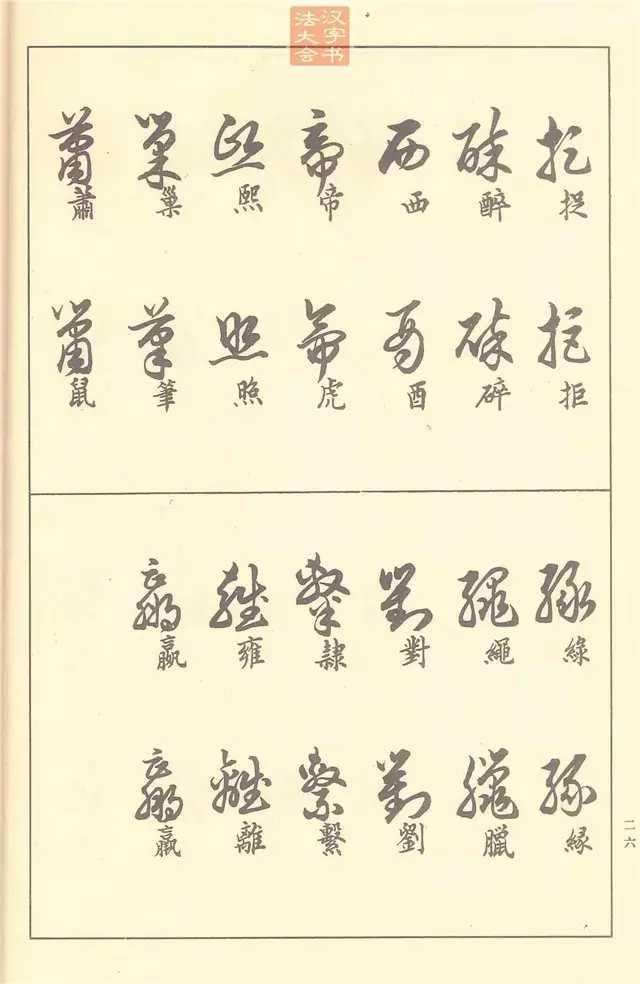 汉字书
法大会
捉 拒
醉 碎
西 酉
帝 虎
熙 照
巢 筆
蕭 鼠
綠 緣
繩 臘
對 劉
隸 繫
雍 離
嬴 羸
二六